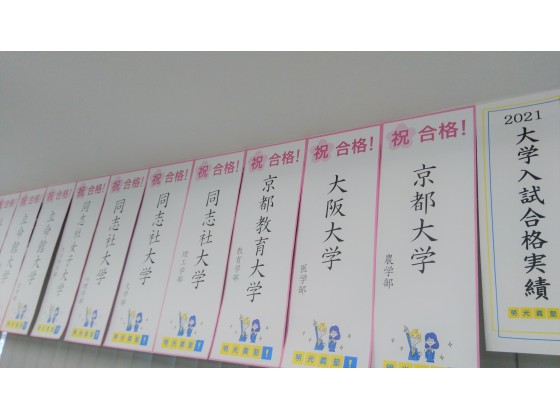 2021
大学入試合格実績
明光義塾
祝 合格!
京都大学
農学部
明光義塾!
祝 合格!
大阪大学
医学部
明光義塾!
祝 合格!
京都教育大学
教育学部
明光義塾!
祝 合格!
同志社大学
理工学部
明光義塾!
祝 合格!
同志社大学
文学部
明光義塾!
祝 合格!
同志社大学
明光義塾!
祝 合格!
同志社女子大学
明光義塾!
祝 合格!
立命館大学
明光義塾!
祝 合格!
立命館大学
合格!